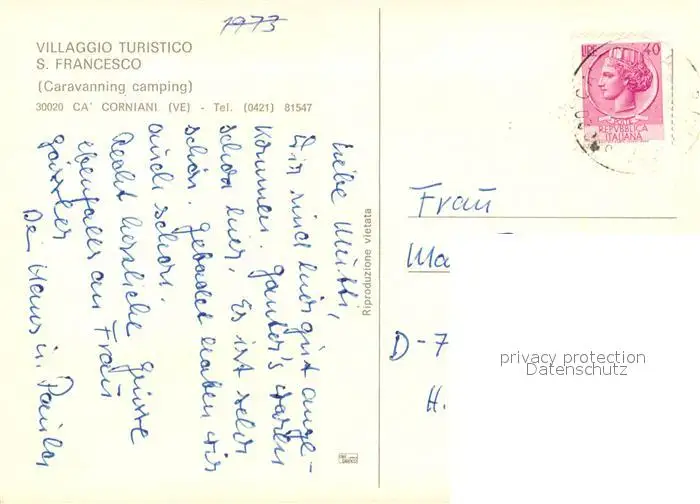 1973
VILLAGGIO TURISTICO
S. FRANCESCO
(Caravanning camping)
30020 CA' CORNIANI (VE) - Tel. (0421) 81547
Liebe Mutti,
Wir sind hier gut ange-
kommen. Ganter's waren
schon hier. Es ist sehr
schön. Gebadet haben wir
auch schon.
Recht herzliche Grüsse
ebenfalls an Frau
Dein Hans u.
Riproduzione vietata
LIRE 40
POSTE
REPVBBLICA
ITALIANA
Frau
Ma
D-7
H.
privacy protection
Datenschutz